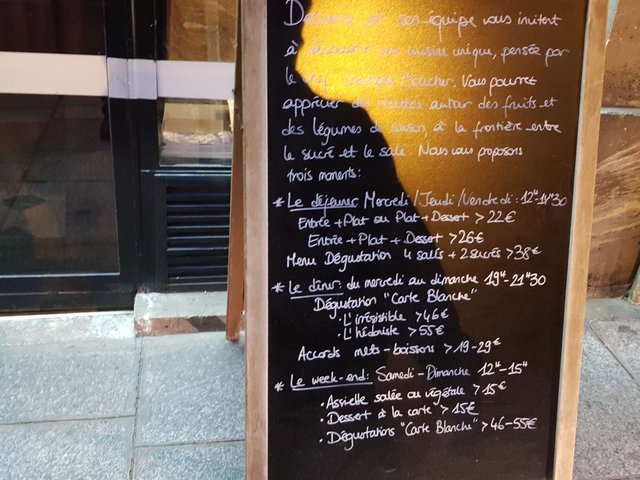 et son équipe vous invitent
à découvrir une cuisine unique, pensée par
le Chef Boucher. Vous pourrez
apprécier des recettes autour des fruits et
des légumes de saison, à la frontière entre
le sucré et le salé. Nous vous proposons
trois moments:
* Le déjeuner Mercredi/Jeudi/Vendredi: 12H-14H30
Entrée + Plat ou Plat + Dessert > 22€
Entrée + Plat + Dessert > 26€
Menu Dégustation 4 salés + 2 sucrés > 38€
* Le dîner: du mercredi au dimanche 19H-21H30
Dégustation "Carte Blanche"
• L'irrésistible > 46€
• L'hédoniste > 55€
Accords mets-boissons > 19-29€
* Le week-end: Samedi-Dimanche 12H-15H
• Assiette salée ou végétale > 15€
• Dessert à la carte > 15€
• Dégustations "Carte Blanche" > 46-55€